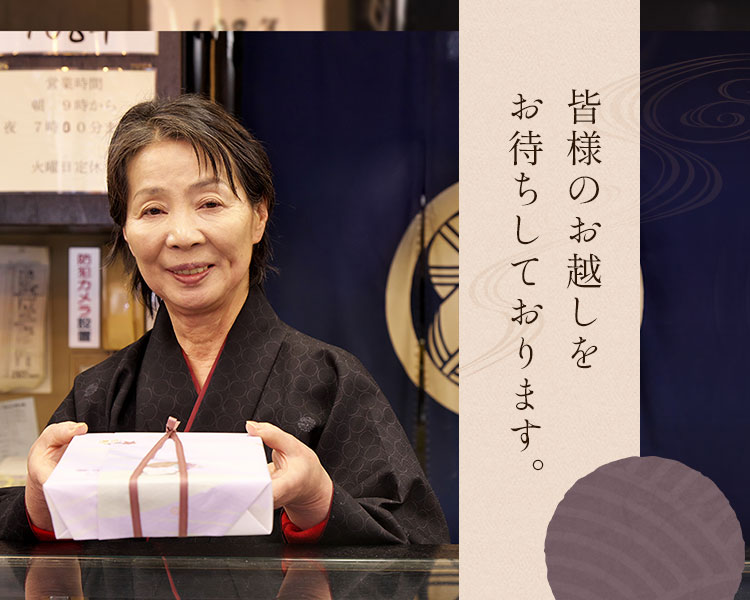 皆様のお越しを
お待ちしております。
営業時間
朝 9時から
夜 7時00分ま
火曜日定休
防犯カメラ設置